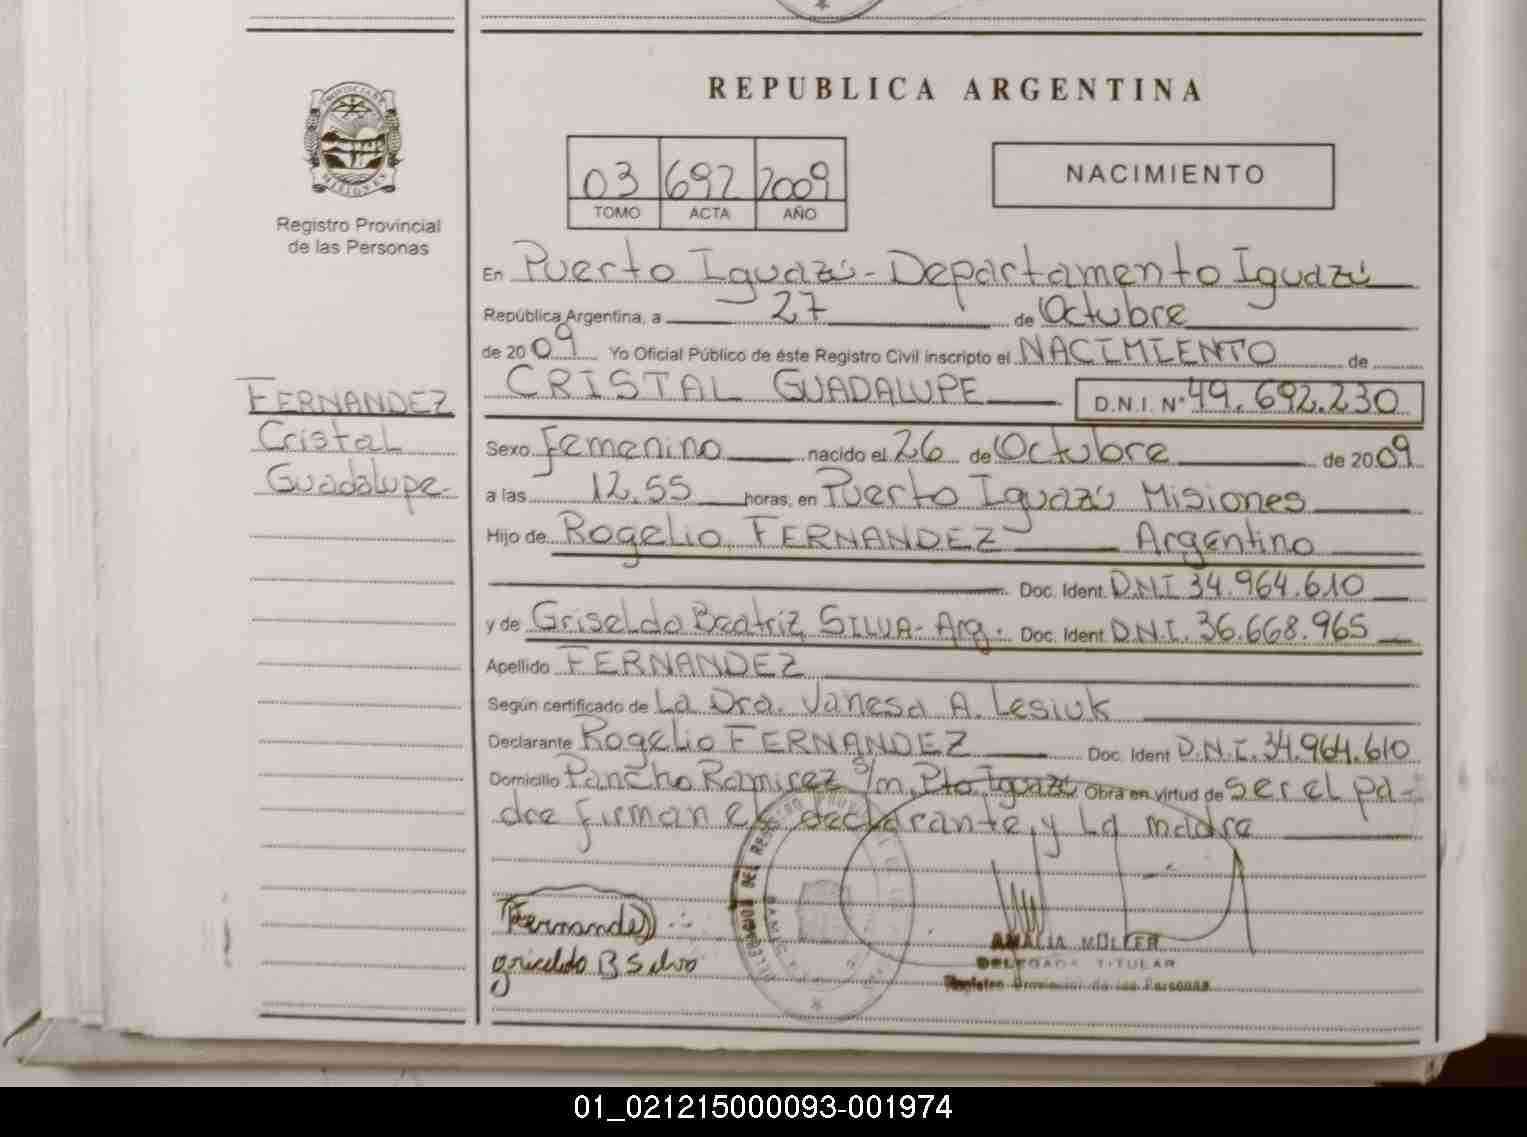 REPUBLICA ARGENTINA
PROVINCIA DE
MISIONES
Registro Provincial
de las Personas
03 692 2009
TOMO ACTA AÑO
NACIMIENTO
En Puerto Iguazú - Departamento Iguazú
República Argentina, a 27 de Octubre
de 2009 Yo Oficial Público de éste Registro Civil inscripto el NACIMIENTO de
CRISTAL GUADALUPE D.N.I. Nº 49.692.230
FERNANDEZ
Cristal
Guadalupe-
Sexo Femenino nacido el 26 de Octubre de 2009
a las 12.55 horas, en Puerto Iguazú Misiones
Hijo de Rogelio FERNANDEZ Argentino
Doc. Ident. D.N.I 34.964.610
y de Griselda Beatriz SILVA- Arg. Doc. Ident. D.N.I. 36.668.965
Apellido FERNANDEZ
Según certificado de La Dra. Vanesa A. Lesiuk
Declarante Rogelio FERNANDEZ Doc. Ident D.N.I. 34.964.610
Domicilio Pancho Ramirez s/n. Pto Iguazú Obra en virtud de ser el pa-
dre firman el declarante, y La madre
Fernandez
griselda B Silva
AMALIA MÜLLER
DELEGADA TITULAR
Registro Provincial de las Personas
01_021215000093-001974